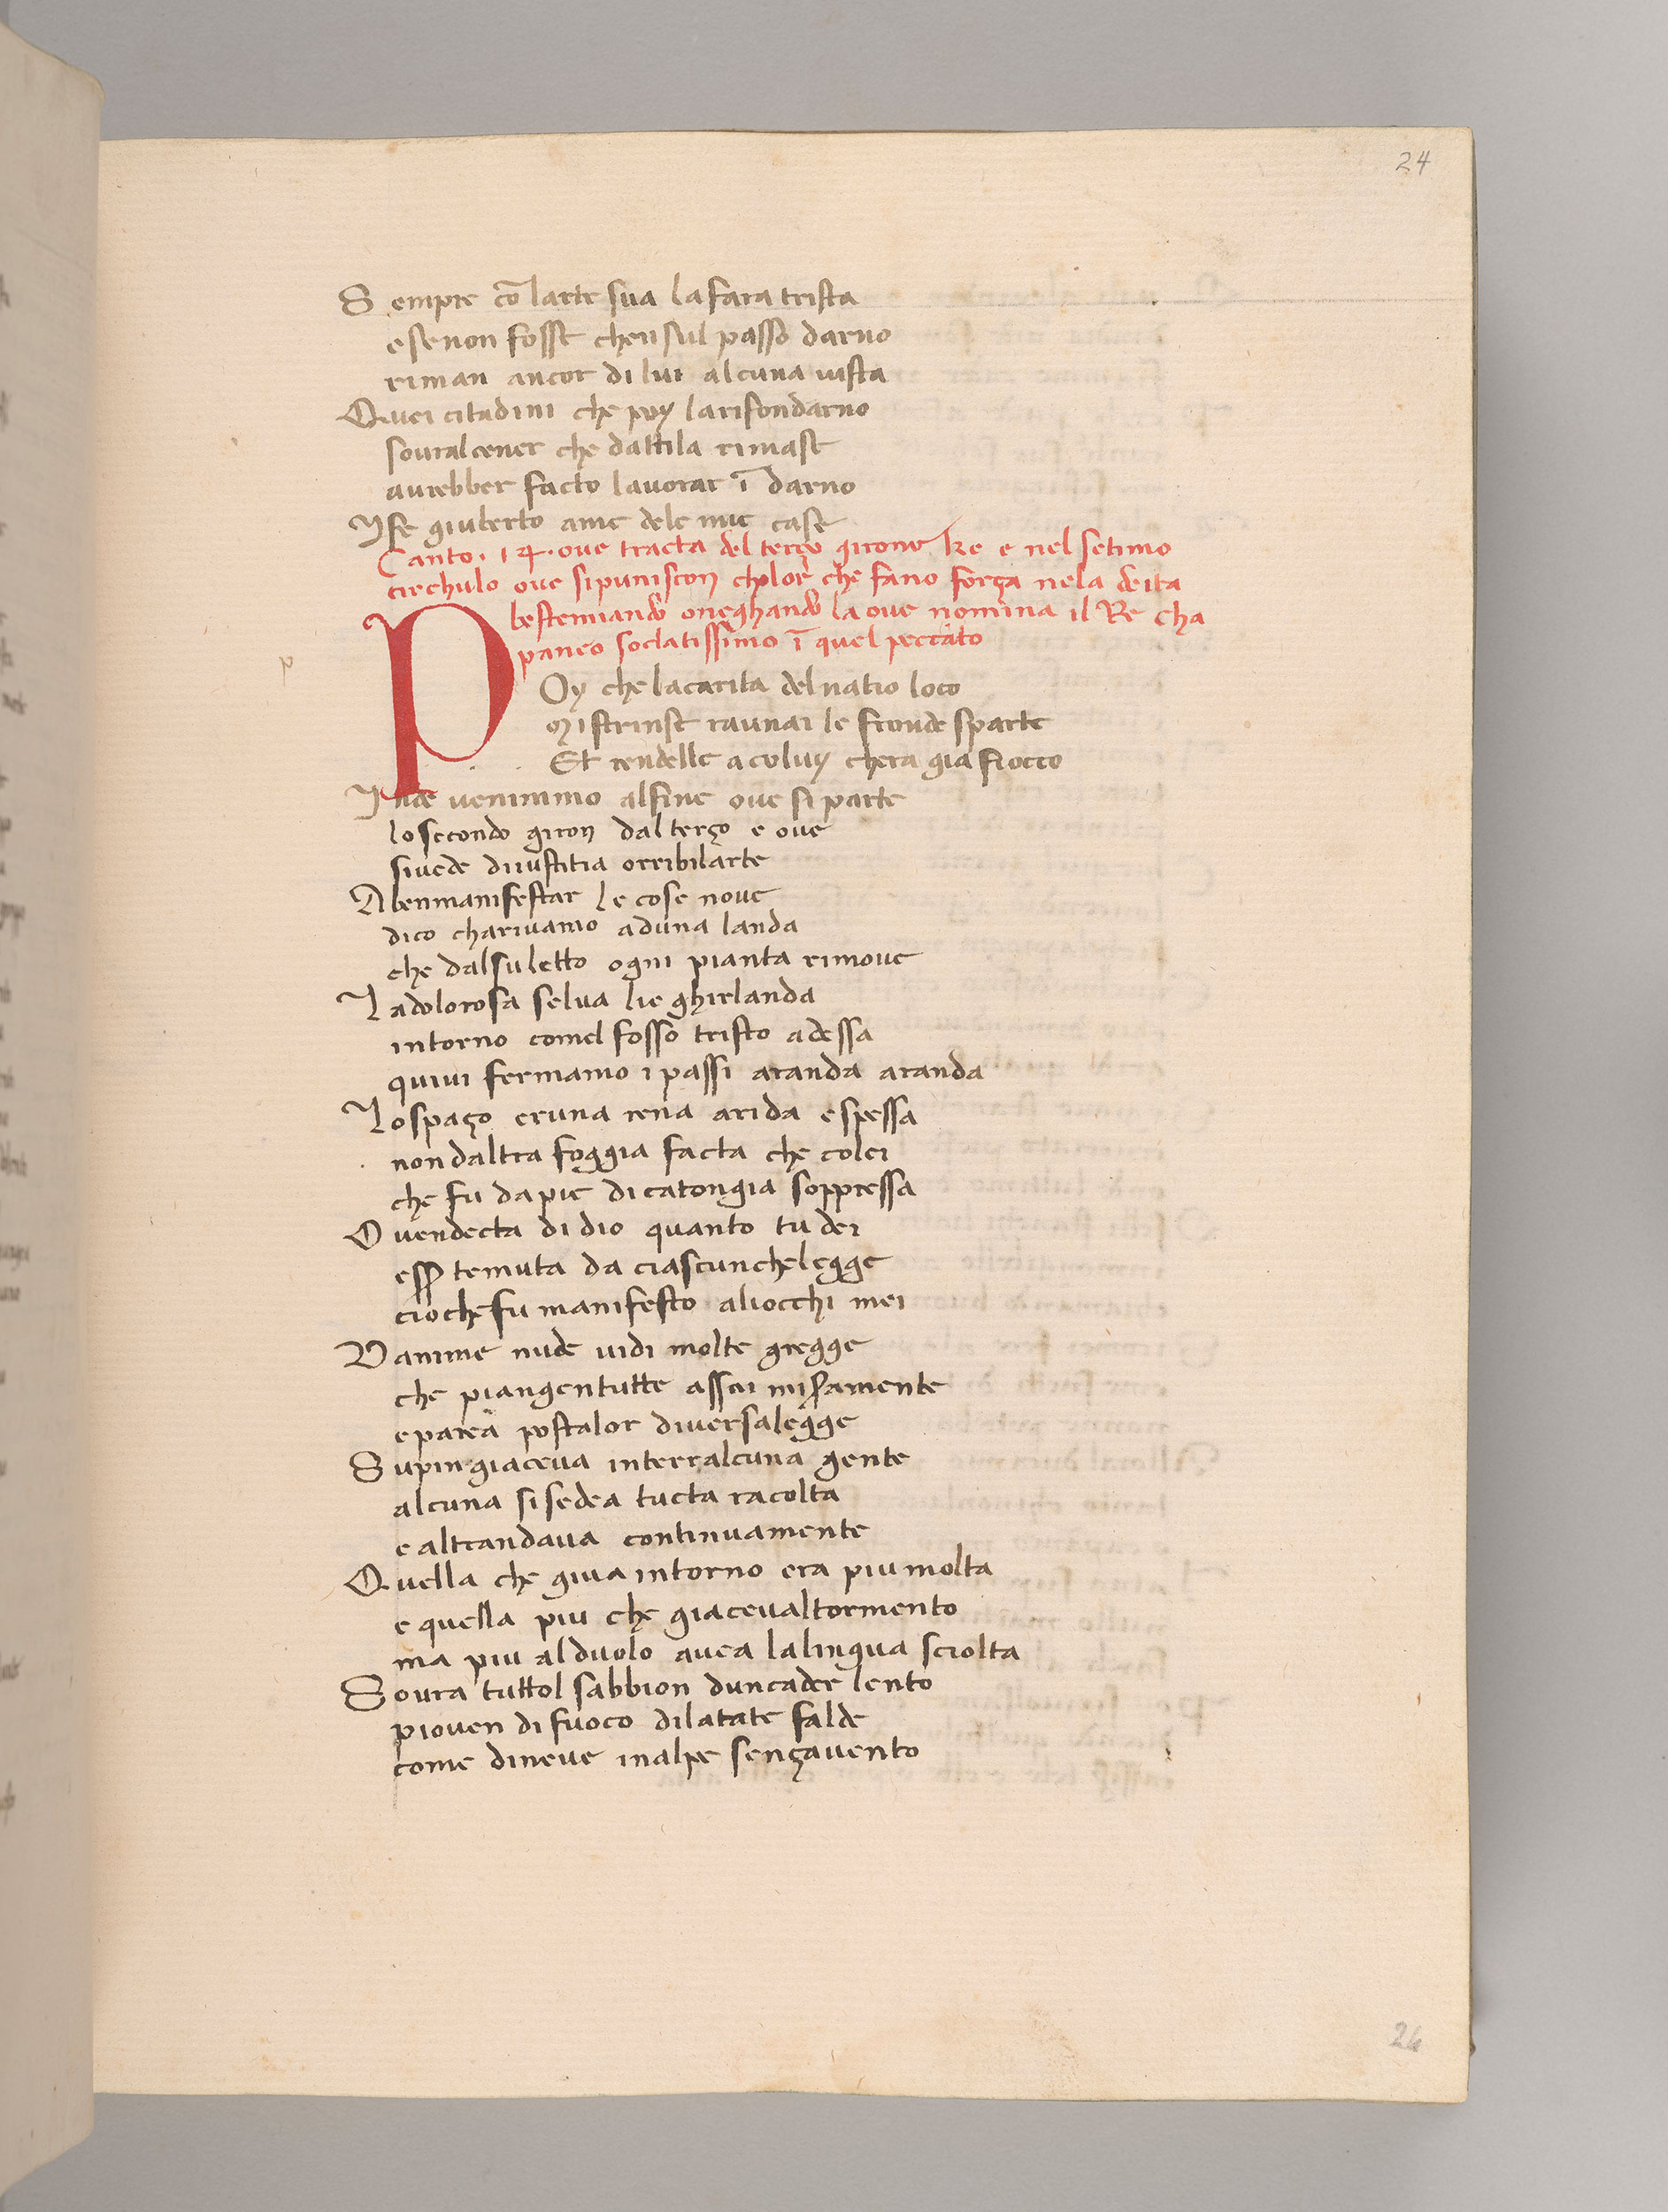 24
Sempre cō larte sua la fara trista
e se non fosse chen sul passo darno
riman ancor di lui alcuna uista
Quei citadini che poy la rifondarno
soural cener che dattila rimase
aurebber facto lauorar ī darno
Y fe giuberto ame dele mie case
Canto . 14 . oue tracta del terço girone e nel setimo
circhulo oue si puniscon cholor che fano força nela deita
bestemiando o neghando la oue nomina il Re Cha
paneo ī quel peccato
p
POy che la carita del natio loco
Mi strinse raunai le fronde sparte
Et rendelle a coluy chera gia fiocco
Inde uenimmo al fine oue si parte
lo secondo giron dal terço e oue
si uede di iustitia orribil arte
A ben manifestar le cose noue
dico charivamo ad una landa
che dal su letto ogni pianta rimoue
La dolorosa selua lie ghirlanda
intorno comel fosso tristo adessa
quiui fermamo i passi aranda aranda
Lo spaço eruna rena arida e spessa
non daltra foggia facta che colei
che fu da pie di caton gia soppressa
O uendecta di dio quanto tu dei
esser temuta da ciascun che legge
cio che fu manifesto ali occhi mei
Danime nude uidi molte gregge
che piangen tutte assai miseramente
e parea posta lor diuersa legge
Supin giaceua in terralcuna gente
alcuna si sedea tucta racolta
e altrandaua continuamente
Quella che giua intorno era piu molta
e quella piu che giaceual tormento
ma piu al duolo auea la lingua sciolta
Soura tuttol sabbion dun cader lento
piouen di fuoco dilatate falde
come di neue in alpe sença uento
26